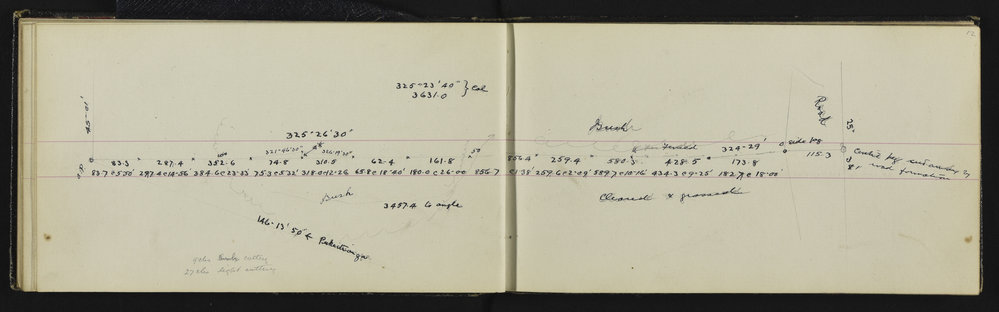 12
325-23'40" } Cal
3631.0
45-01'
325-26'30"
Bush
Road
25'
321-46'30"
326-19'30"
324-29'
side peg
83.3 287.4 352.6 74.8 310.8 62.4 161.8 50
856.4 259.4 580.3 428.5 173.8
115.3
Centre peg
road formation
83.7 @ 5°50' 297.4 @ 14°56' 384.6 @ 23°33' 75.3 @ 5°32' 318.0 @ 12-26 65.8 @ 18°40' 180.0 @ 26-00
856.7 @ 1°38' 259.6 @ 2-09' 589.7 @ 10°16' 434.3 @ 9-25' 182.7 @ 18°00'
Bush
3457.4 to angle
Cleared & grassed
146-13'50"
cutting
27 chs light cutting